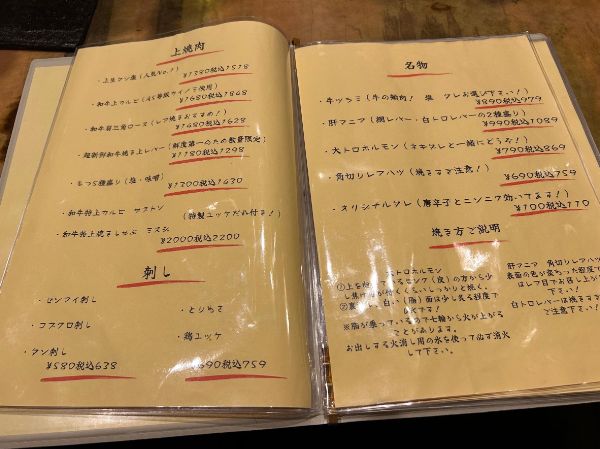 上焼肉
・上生タン塩(人気No.1)
¥1380税込1518
・和牛上カルビ(A5等級サイノミ使用)
¥1680税込1868
・和牛肩三角ロース(レア焼きおすすめ!)
¥1480税込1628
・超新鮮和牛焼き上レバー(鮮度第一のため数量限定)
¥1180税込1298
・もつ5種盛り(塩・味噌)
¥1300税込1430
・和牛特上カルビ サブトン
(特製ユッケだれ付き!)
・和牛特上焼きしゃぶ ミスジ
¥2000税込2200
刺し
・センマイ刺し
・とりわさ
・コブクロ刺し
・鶏ユッケ
・タン刺し
¥580税込638
¥690税込759
名物
・牛ツラミ(牛の頬肉! 塩 タレお選び下さい!)
¥890税込979
・肝マニア(潤レバー、白トロレバーの2種盛り)
¥990税込1089
・大トロホルモン(ネギタレと一緒にどうぞ!)
¥790税込869
・角切りレアハツ(焼きすぎ注意!)
¥690税込759
・オリジナルダレ(唐辛子とニンニク効いてます!)
¥100税込110
焼き方ご説明
大トロホルモン
①上を向いているピンク(皮)の方から少し焦げ目が付くくらいしっかりと焼く。
②裏返し、白い(脂)面は少し炙る程度でOKです!
※脂が乗っているので七輪から火が上がることがあります。
お出しする火消し用の氷を使って出ず消火して下さい。
肝マニア 角切りレアハツ
表面の色が変わった程度で
はレア目でお召し上が
下さい!
白トロレバーは焼きす
ご注意下さい!